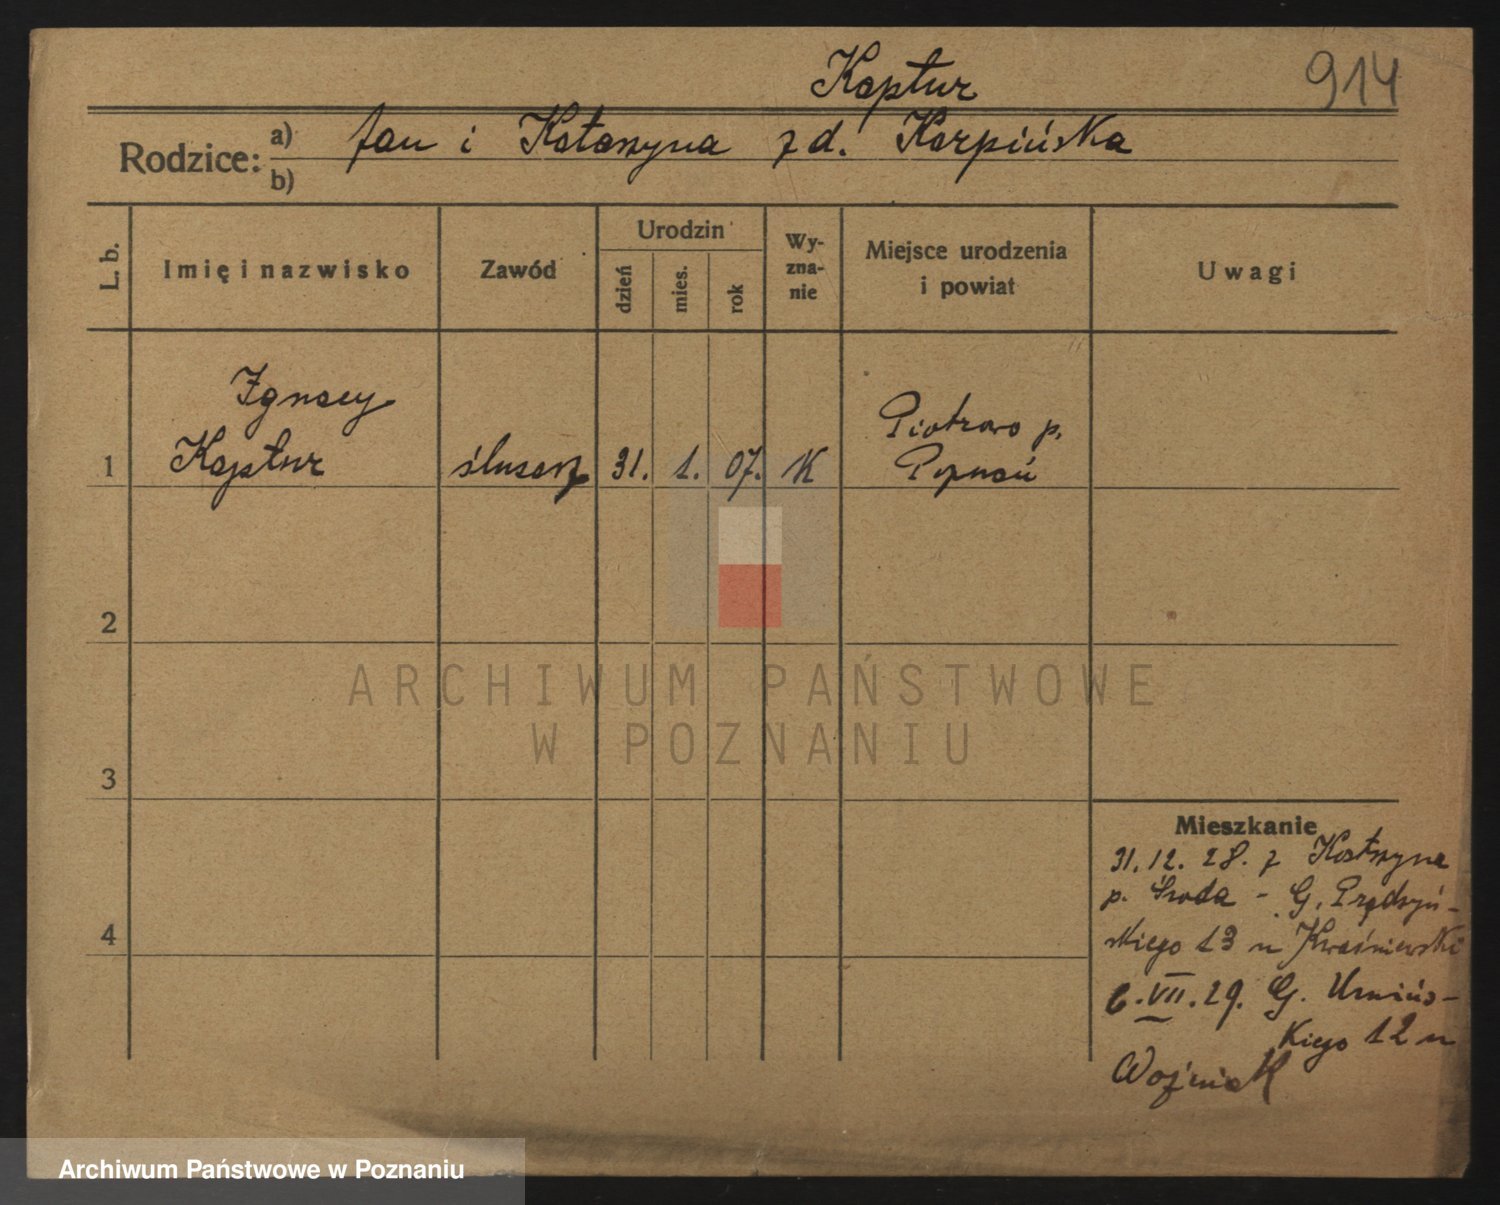 Kaptur
914
Rodzice: a) Jan i Katarzyna z d. Karpińska
b)
L. b. Imię i nazwisko Zawód Urodzin dzień mies. rok Wyzna-nie Miejsce urodzenia i powiat Uwagi
Ignacy
1 Kaptur ślusarz 31. 1. 07. K Piotrowo p. Poznań
2
3
4
Mieszkanie
31.12.28. z Kostrzyna
p. Środa - G. Prądzyń-
skiego 13 u Kwaśniewski
6.VII.29. G. Umińs-
kiego 12 u
Woźniak
ARCHIWUM PAŃSTWOWE
W POZNANIU
Archiwum Państwowe w Poznaniu